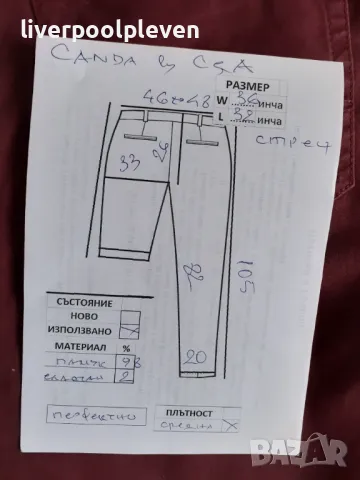 liverpoolpleven
CANDA by C&A
РАЗМЕР
46 48
W 36 инча
L 32 инча
стреч
33
26
105
20
СЪСТОЯНИЕ
НОВО
ИЗПОЛЗВАНО X
МАТЕРИАЛ %
памук 98
еластан 2
перфектно
ПЛЪТНОСТ
средна X
BAZAR